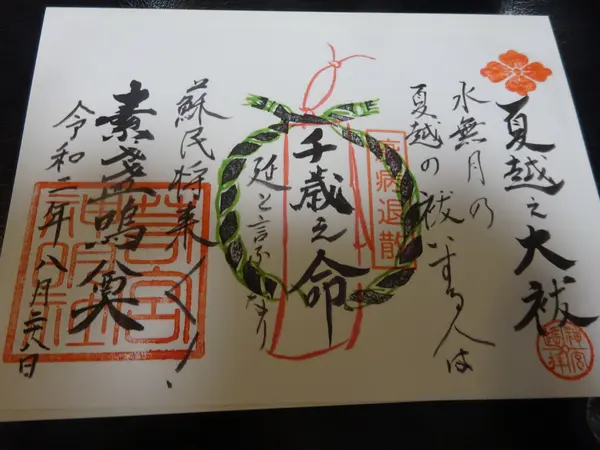 夏越之大祓
水無月の
夏越の祓いする人は
病退散
千歳之命
延と言ふなり
蘇民将来
素盞嗚尊
令和二年八月六日